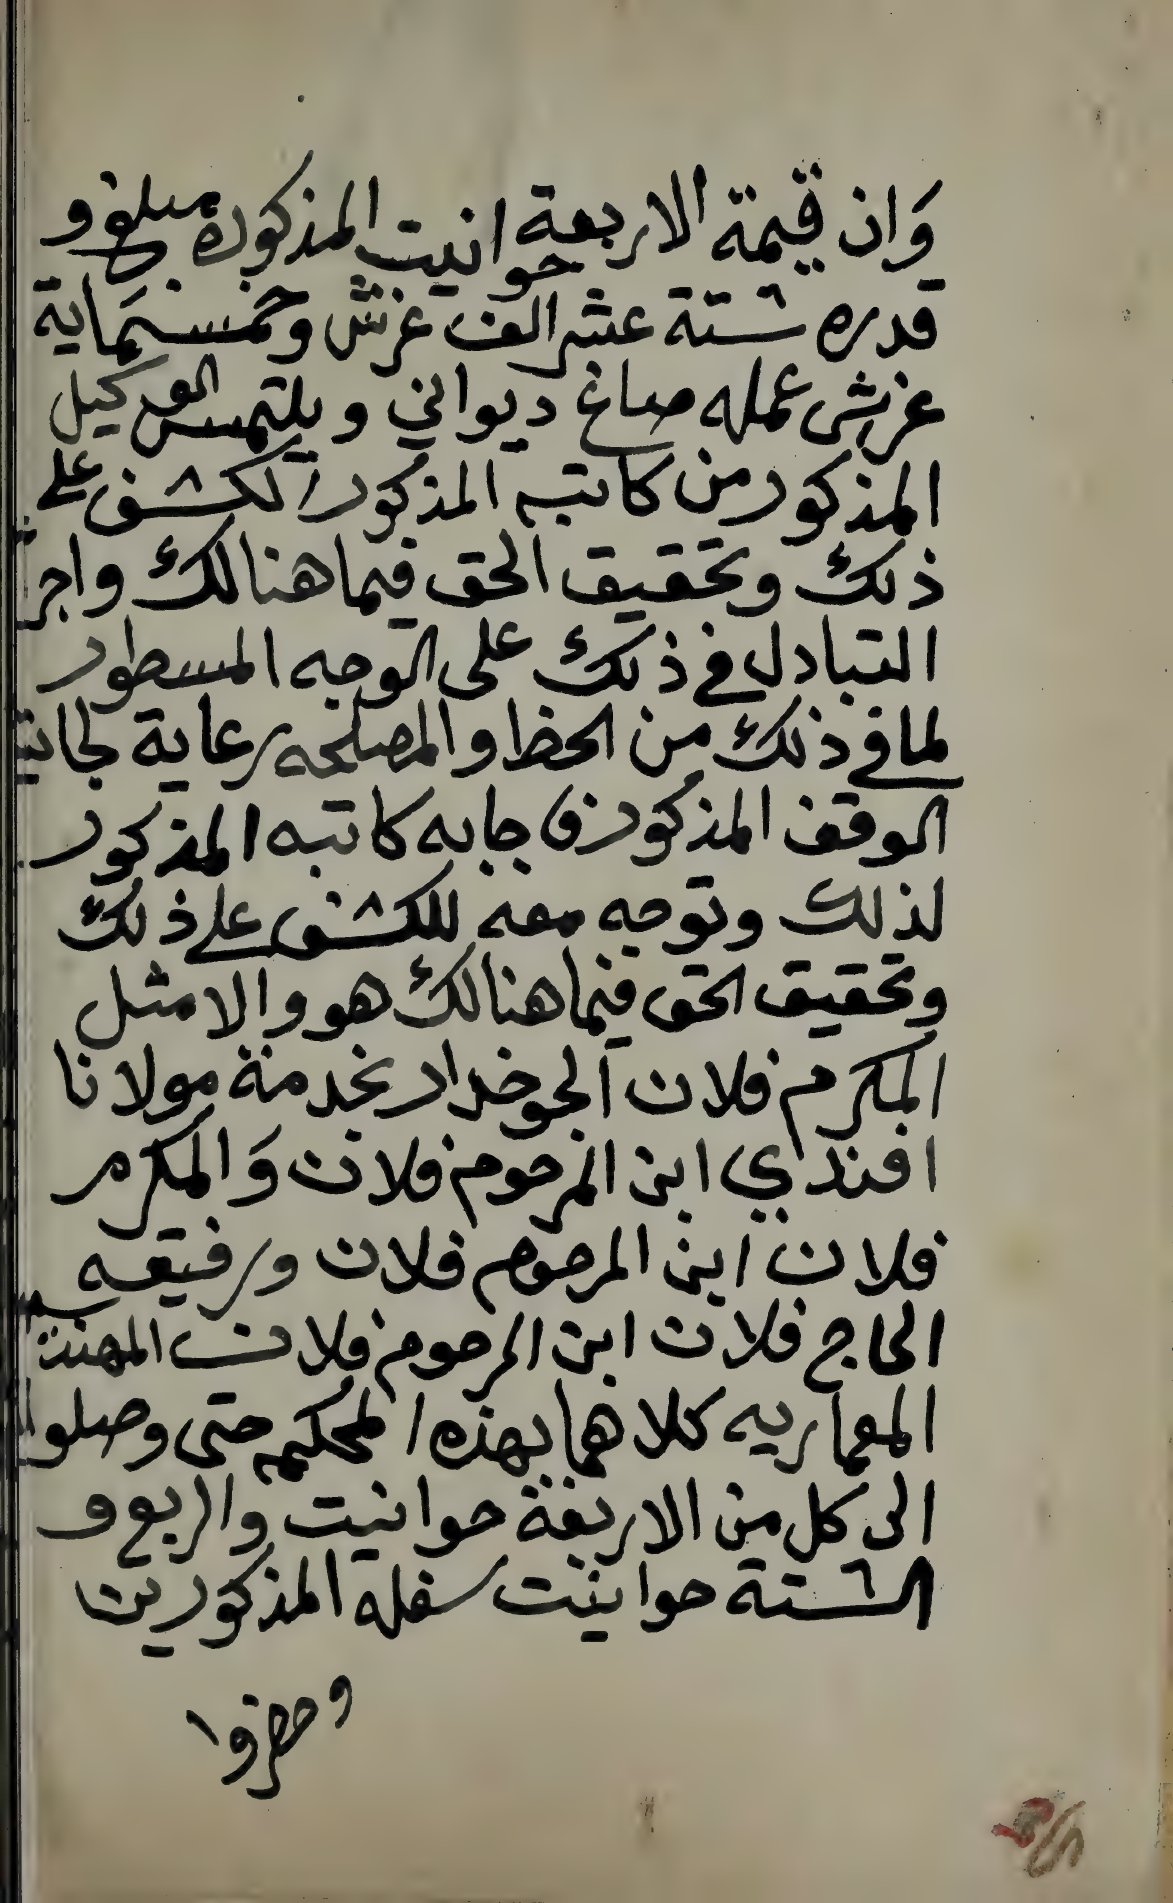 وان قيمة الاربعة حوانيت المذكوره مبلغ و
قدره ستة عشر الف غرش وخمسماية
غرش عمله صاغ ديواني ويلتمس الوكيل
المذكور من كاتبه المذكور الكشف على
ذلك وتحقيق الحق فيما هنالك واجر
التبادل في ذلك على الوجه المسطور
لما في ذلك من الحظ والمصلحه رعاية لجانب
الوقف المذكور فاجابه كاتبه المذكور
لذلك وتوجه معه للكشف على ذلك
وتحقيق الحق فيما هنالك هو والامثل
المكرم فلان الجوخدار بخدمة مولانا
افندي ابن المرحوم فلان والمكرم
فلان ابن المرحوم فلان ورفيقه
الحاج فلان ابن المرحوم فلان المهندسين
المعماريه كلاهما بهذه المحكمه حتى وصلوا
الى كل من الاربعة حوانيت والربع و
الستة حوانيت سفله المذكورين